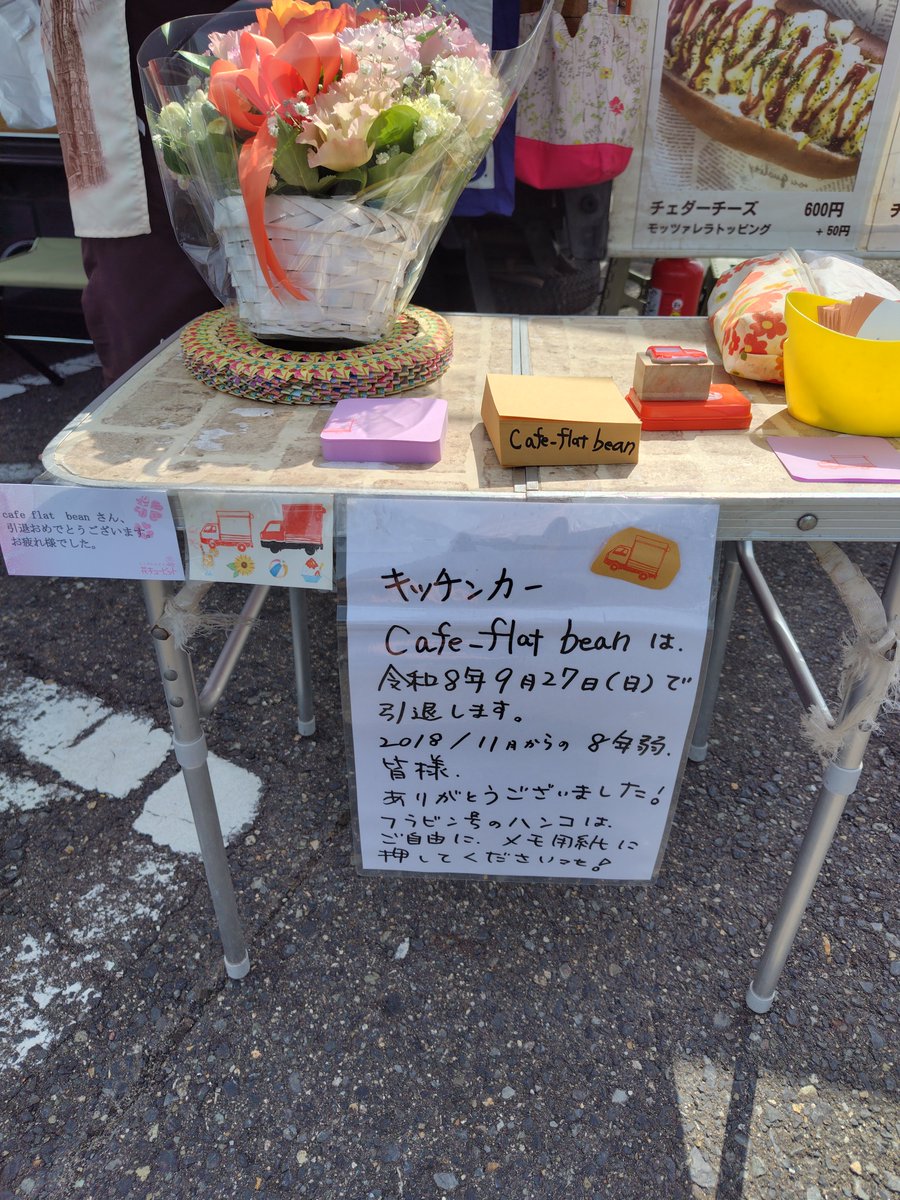 チェダーチーズ 600円
モッツァレラトッピング +50円
Cafe-flat bean
cafe flat bean さん、
引退おめでとうございます。
お疲れ様でした。
花キューピット
キッチンカー
Cafe-flat bean は、
令和8年9月27日(日)で
引退します。
2018/11月からの 8年弱、
皆様、
ありがとうございました!
フラビン号のハンコは、
ご自由に、メモ用紙に
押してくださいっと!